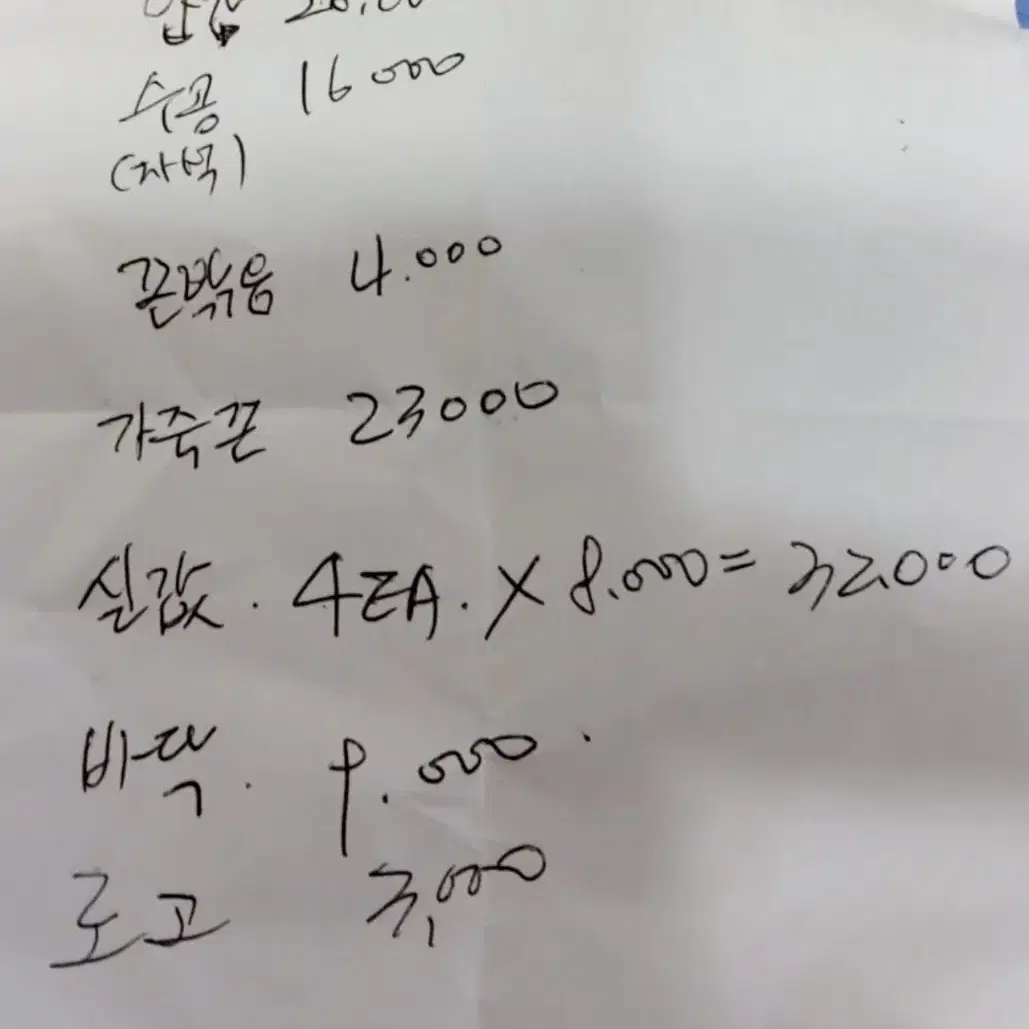 수공 16000
(자석)
끈박음 4.000
가죽끈 23000
실값. 4EA. X 8.000 = 32.000
바닥. 9.000.
로고 3,000